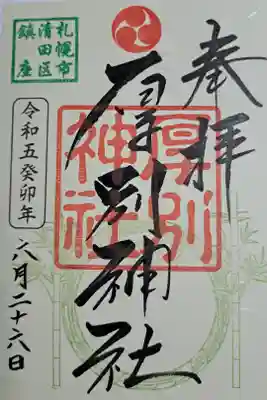 奉拝
厚別神社
厚別
神社
札幌市
清田区
鎮座
令和五癸卯年
八月二十六日